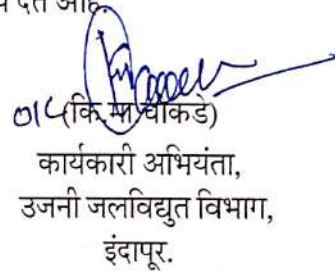 देत आहे.
(कि.मा.वाकडे)
कार्यकारी अभियंता,
उजनी जलविद्युत विभाग,
इंदापूर.